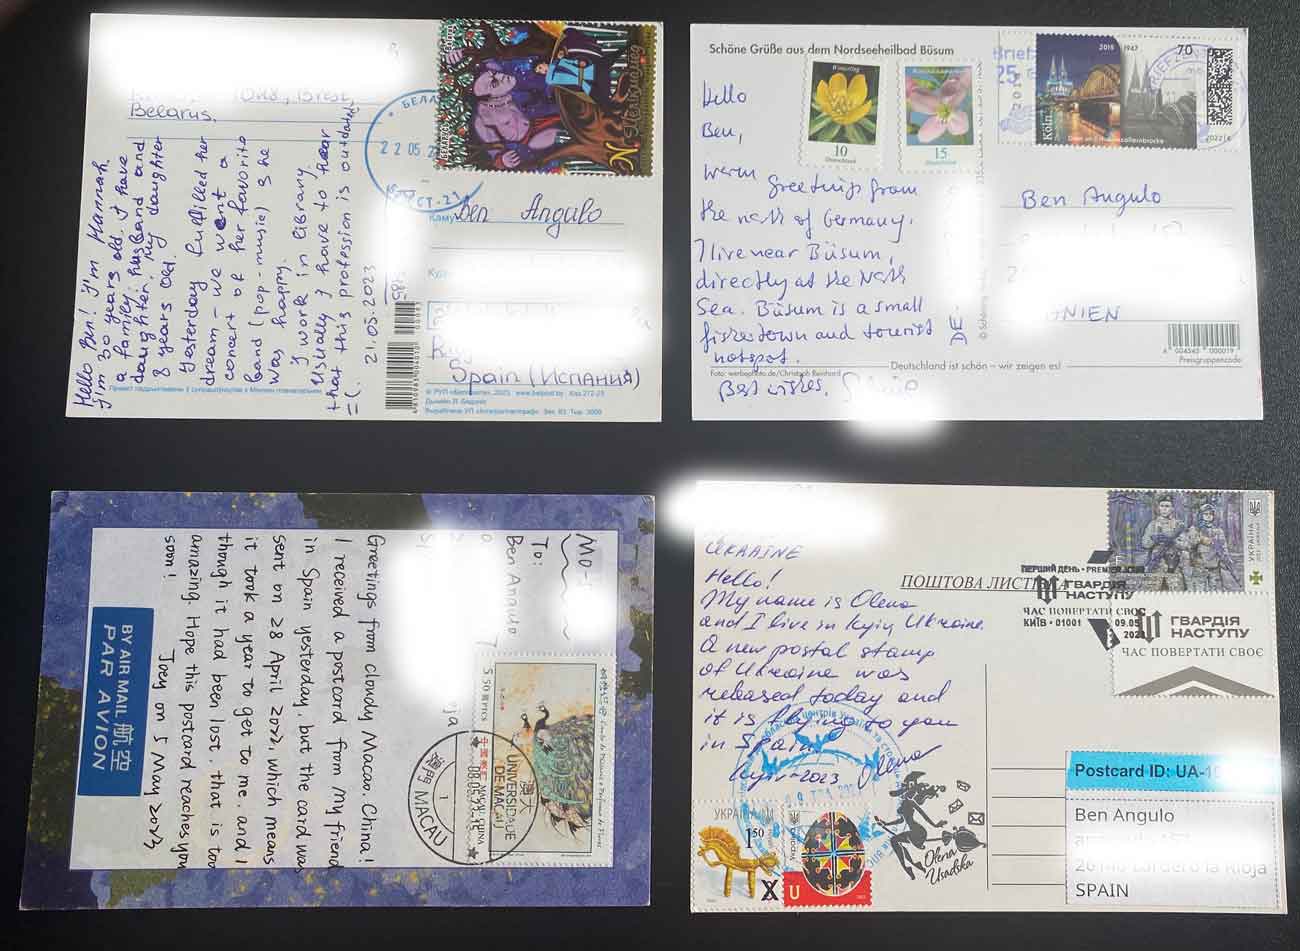 Belarus.
Hello Ben! I'm Hannah
I'm 30 years old. I have
a family: husband and
daughter. My daughter
8 years old.
Yesterday fulfilled her
dream - we went a
concert of her favorite
band (pop-music) She
was happy.
I work in library.
Usually I have to hear
that this profession is outdated
=(
21.05.2023
22 05 2
Ben Angulo
Spain (Испания)
Schöne Grüße aus dem Nordseeheilbad Büsum
Hello
Ben,
warm greetings from
the north of Germany.
I live near Büsum,
directly at the North
Sea. Büsum is a small
fishertown and tourist
hotspot.
Best wishes,
Foto: werbephoto.de/Christoph Bernhard
Deutschland ist schön – wir zeigen es!
10
Deutschland
15
Deutschland
2018 1947
70
Köln
Ben Angulo
NIEN
4 004545 000019
Preisgruppencode
To:
Ben Angulo
Greetings from cloudy Macao. China!
I received a postcard from my friend
in Spain yesterday, but the card was
sent on 28 April 2022, which means
it took a year to get to me, and I
though it had been lost, that is too
amazing. Hope this postcard reaches you
soon!
Joey on 5 May 2023
BY AIR MAIL 航空
PAR AVION
5.50
澳門 MACAU
UKRAINE
Hello!
My name is Olena
and I live in Kyiv Ukraine.
A new postal stamp
of Ukraine was
released today and
it is flying to you
in Spain.
Kyiv-2023 Olena
ПОШТОВА ЛИСТ
ПЕРШИЙ ДЕНЬ • PREMIER JOUR
ГВАРДІЯ
НАСТУПУ
ЧАС ПОВЕРТАТИ СВОЄ
КИЇВ • 01001 09.05
ГВАРДІЯ
НАСТУПУ
ЧАС ПОВЕРТАТИ СВОЄ
УКРАЇНА
1.50
U
Olena
Usadska
Postcard ID: UA-1
Ben Angulo
SPAIN